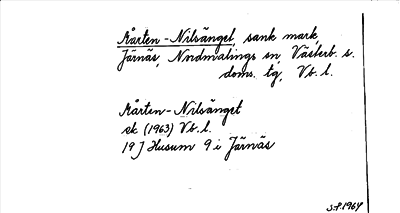 Mårten-Nilsänget, sank mark
Järnäs, Nordmalings sn, Västerb. s.
doms. tg, Vb. l.
Mårten-Nilsänget
ek (1963) Vb. l.
19 J Husum 9 i Järnäs
S.P. 1964